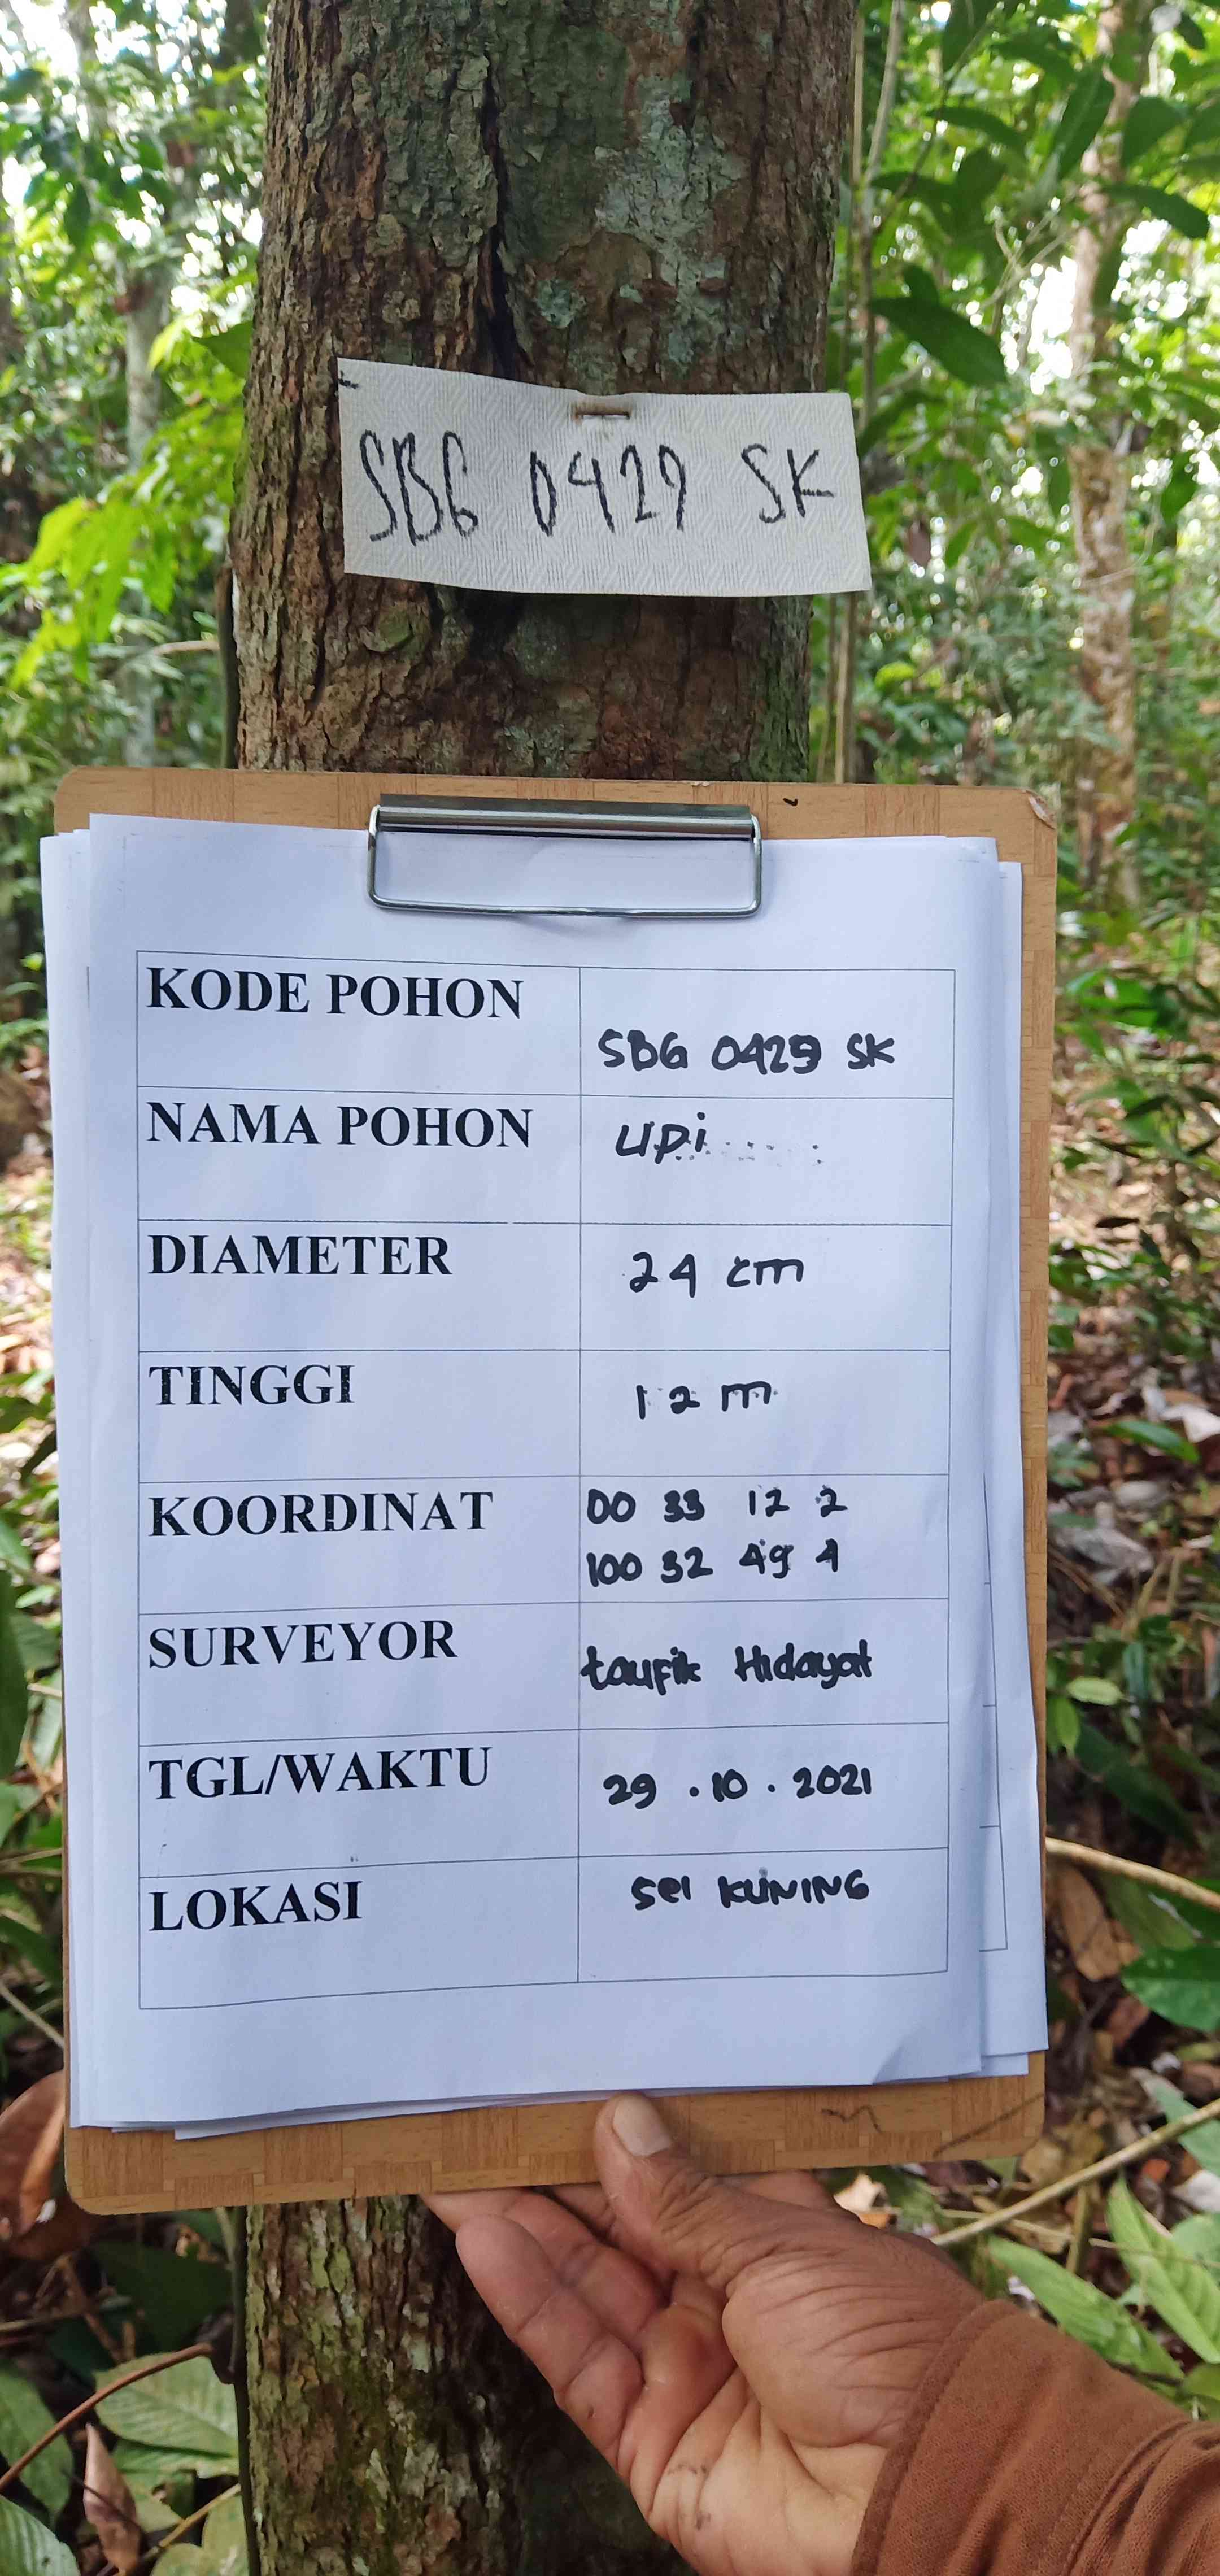 SBG 0429 SK
KODE POHON
SBG 0429 SK
NAMA POHON
upi
DIAMETER
24 cm
TINGGI
12 m
KOORDINAT
00 33 12 2
100 32 49 4
SURVEYOR
taufik Hidayat
TGL/WAKTU
29 . 10 . 2021
LOKASI
Sei KUNING